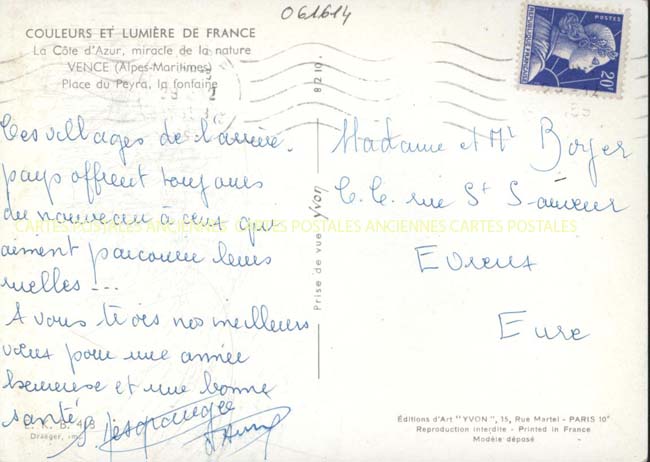 061614
COULEURS ET LUMIÈRE DE FRANCE
La Côte d'Azur, miracle de la nature
VENCE (Alpes-Maritimes)
Place du Peyra, la fontaine
8210
POSTES
20F
Ces villages de l'arrière.
pays offrent toujours
du nouveau à ceux qui
aiment parcourir leurs
ruelles...
A vous tous nos meilleurs
vœux pour une année
heureuse et une bonne
santé.
Prise de vue Yvon
Madame et Mr Boyer
rue St Sauveur
Evreux
Eure
CARTES POSTALES ANCIENNES CARTES POSTALES ANCIENNES CARTES POSTALES
Draeger, imp.
Éditions d'Art "YVON", 15, Rue Martel - PARIS 10e
Reproduction interdite - Printed in France
Modèle déposé